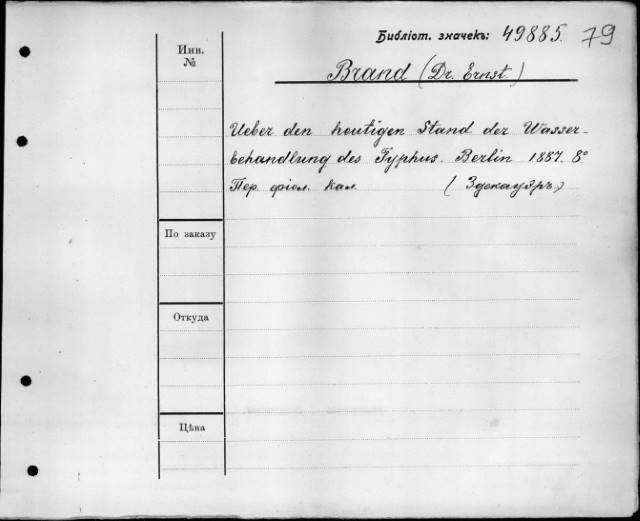 Библіот. значекъ: 49885. 79
Инв.
№
Brand (Dr. Ernst.)
Ueber den heutigen Stand der Wasser-
behandlung des Typhus. Berlin 1887. 8°
Пер. фіол. кал. (Здекауэръ.)
По заказу
Откуда
Цѣна